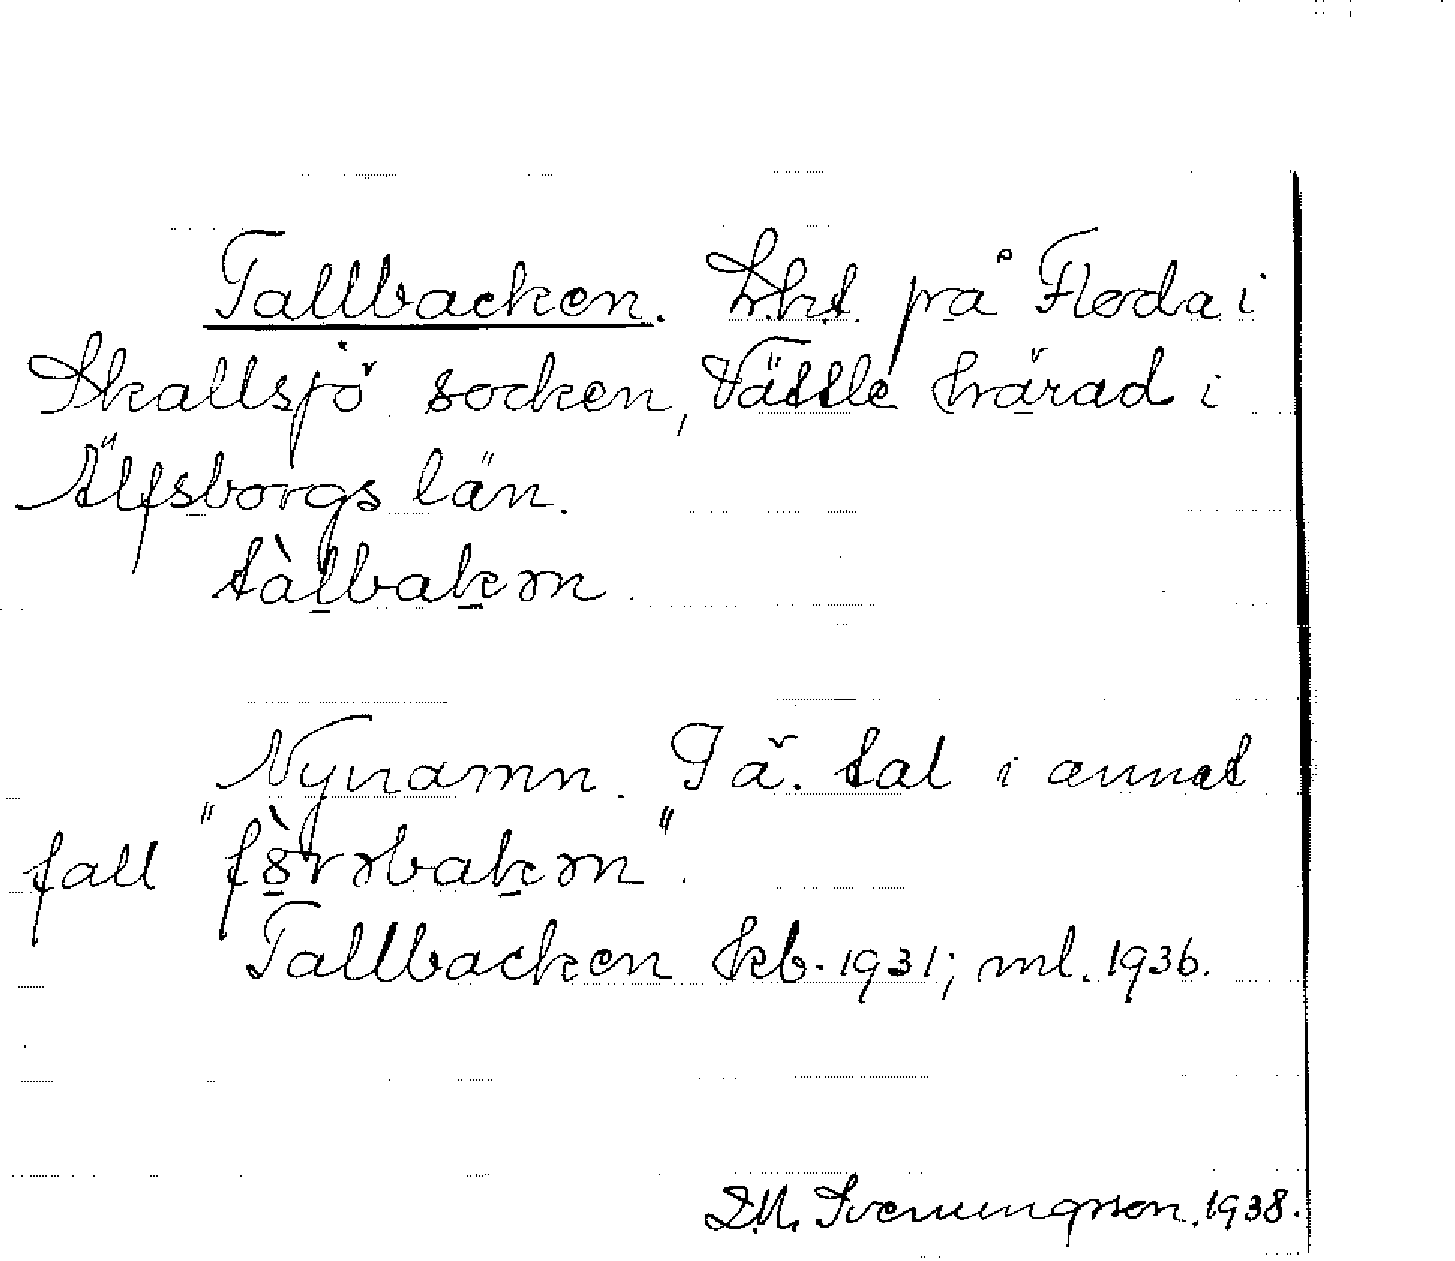 Tallbacken. Lht på Floda i
Skallsjö socken, Vättle härad i
Älfsborgs län.
tàlbakɷn
Nynamn. I ä. tal i annat
fall "fò̱rɷbakɷn".
Tallbacken kb. 1931; ml. 1936.
D.M. Svenningsson. 1938.